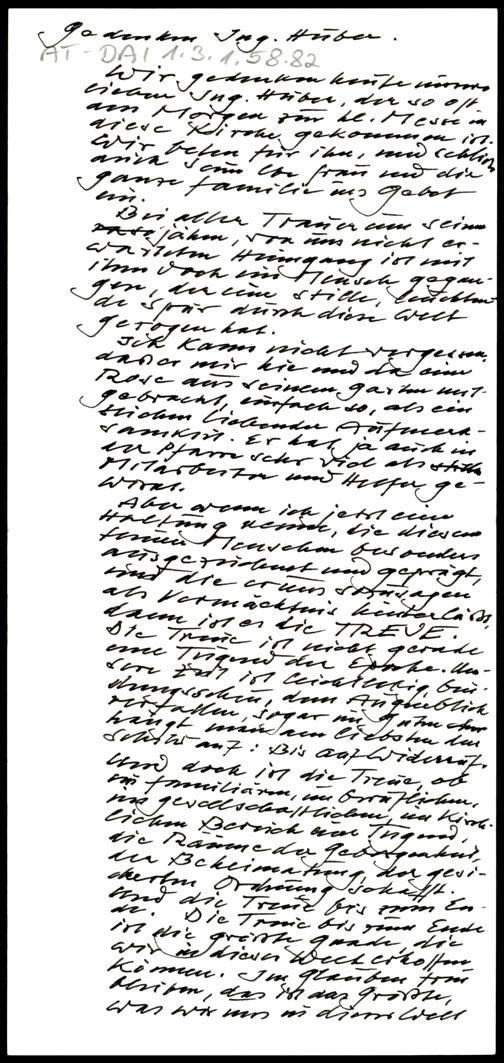 Gedenken Ing. Huber.
AT-DAI 1.3.1.58.82
Wir gedenken heute unseres
lieben Ing. Huber, der so oft
am Morgen zur hl. Messe in
diese Kirche gekommen ist.
Wir beten für ihn, und schließen
auch seine lbe Frau und die
ganze Familie ins Gebet
ein.
Bei aller Trauer um seinen
jähen, von uns nicht er-
warteten Heimgang ist mit
ihm doch ein Mensch gegan-
gen, der eine stille, leuchten-
de Spur durch diese Welt
gezogen hat.
Ich kann nicht vergessen,
daß er mir hie und da eine
Rose aus seinem Garten mit-
gebracht, einfach so, als ein
Zeichen liebender Aufmerk-
samkeit. Er hat ja auch in
der Pfarre sehr viel als stiller
Mitarbeiter und Helfer ge-
wirkt.
Aber wenn ich jetzt eine
Haltung nenne, die diesen
feinen Menschen besonders
ausgezeichnet und geprägt,
und die er uns sozusagen
als Vermächtnis hinterläßt,
dann ist es die TREUE.
Die Treue ist nicht gerade
eine Tugend der Epoche. Un-
sere Zeit ist leichtlebig, bin-
dungsscheu, dem Augenblick
verfallen, sogar im guten
hängt man am liebsten den
Schild auf: Bis auf Widerruf.
Und doch ist die Treue, ob
im familiären, im beruflichen,
im gesellschaftlichen, im kirch-
lichen Bereich eine Tugend,
die Räume der Geborgenheit,
der Beheimatung, der gesi-
cherten Ordnung schafft.
Und die Treue bis zum En-
de. Die Treue bis zum Ende
ist die größte Gnade, die
wir in dieser Welt erhoffen
können. Im Glauben treu
bleiben, das ist das Größte,
was wir uns in dieser Welt